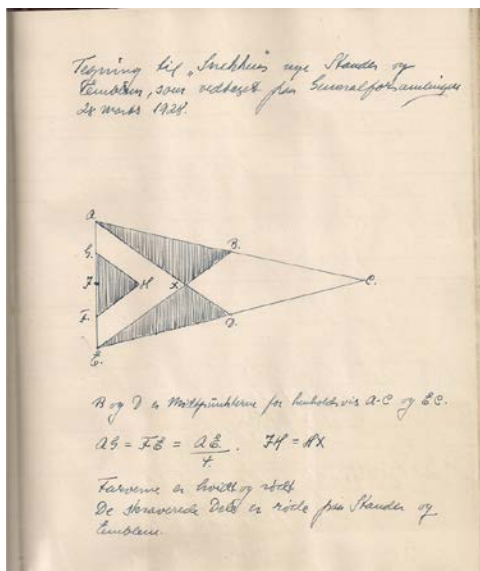 Tegning til „Snekkens" nye Stander og
Emblem, som vedtaget paa Generalforsamlingen
28 Marts 1928.
A
B.
G.
J
H
X
C.
F.
D.
E.
B og D er Midtpunkterne for henholdsvis A-C og EC.
AG = FE = AE/4. JH = HX
Farverne er hvidt og rødt
De skraverede Dele er røde paa Stander og
Emblem.